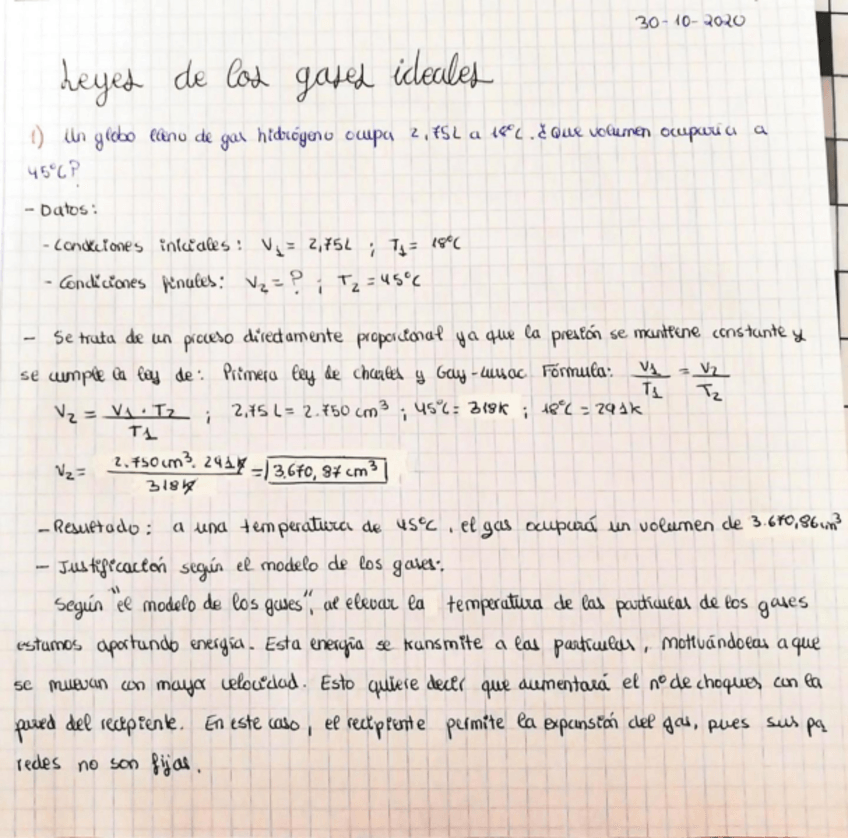 30-10-2020
Leyes de los gases ideales
1) Un globo lleno de gas hidrógeno ocupa 2,75L a 18°C. ¿Que volumen ocuparía a
45°C?
- Datos:
- Condiciones iniciales: V₁ = 2,75L ; T₁ = 18°C
- Condiciones finales: V₂ = ? ; T₂ = 45°C
- Se trata de un proceso directamente proporcional ya que la presión se mantiene constante y
se cumple la ley de: Primera ley de charles y Gay-Lussac Fórmula: V₁/T₁ = V₂/T₂
V₂ = V₁ · T₂ / T₁ ; 2,75 L = 2.750 cm³ ; 45°C = 318K ; 18°C = 291K
V₂ = 2.750cm³ · 291K / 318K = 3.670,87 cm³
- Resultado: a una temperatura de 45°C, el gas ocupará un volumen de 3.670,86cm³
- Justificación según el modelo de los gases:
Según "el modelo de los gases", al elevar la temperatura de las partículas de los gases
estamos aportando energía. Esta energía se transmite a las partículas, motivándolas a que
se muevan con mayor velocidad. Esto quiere decir que aumentará el nº de choques con la
pared del recipiente. En este caso, el recipiente permite la expansión del gas, pues sus pa
redes no son fijas.